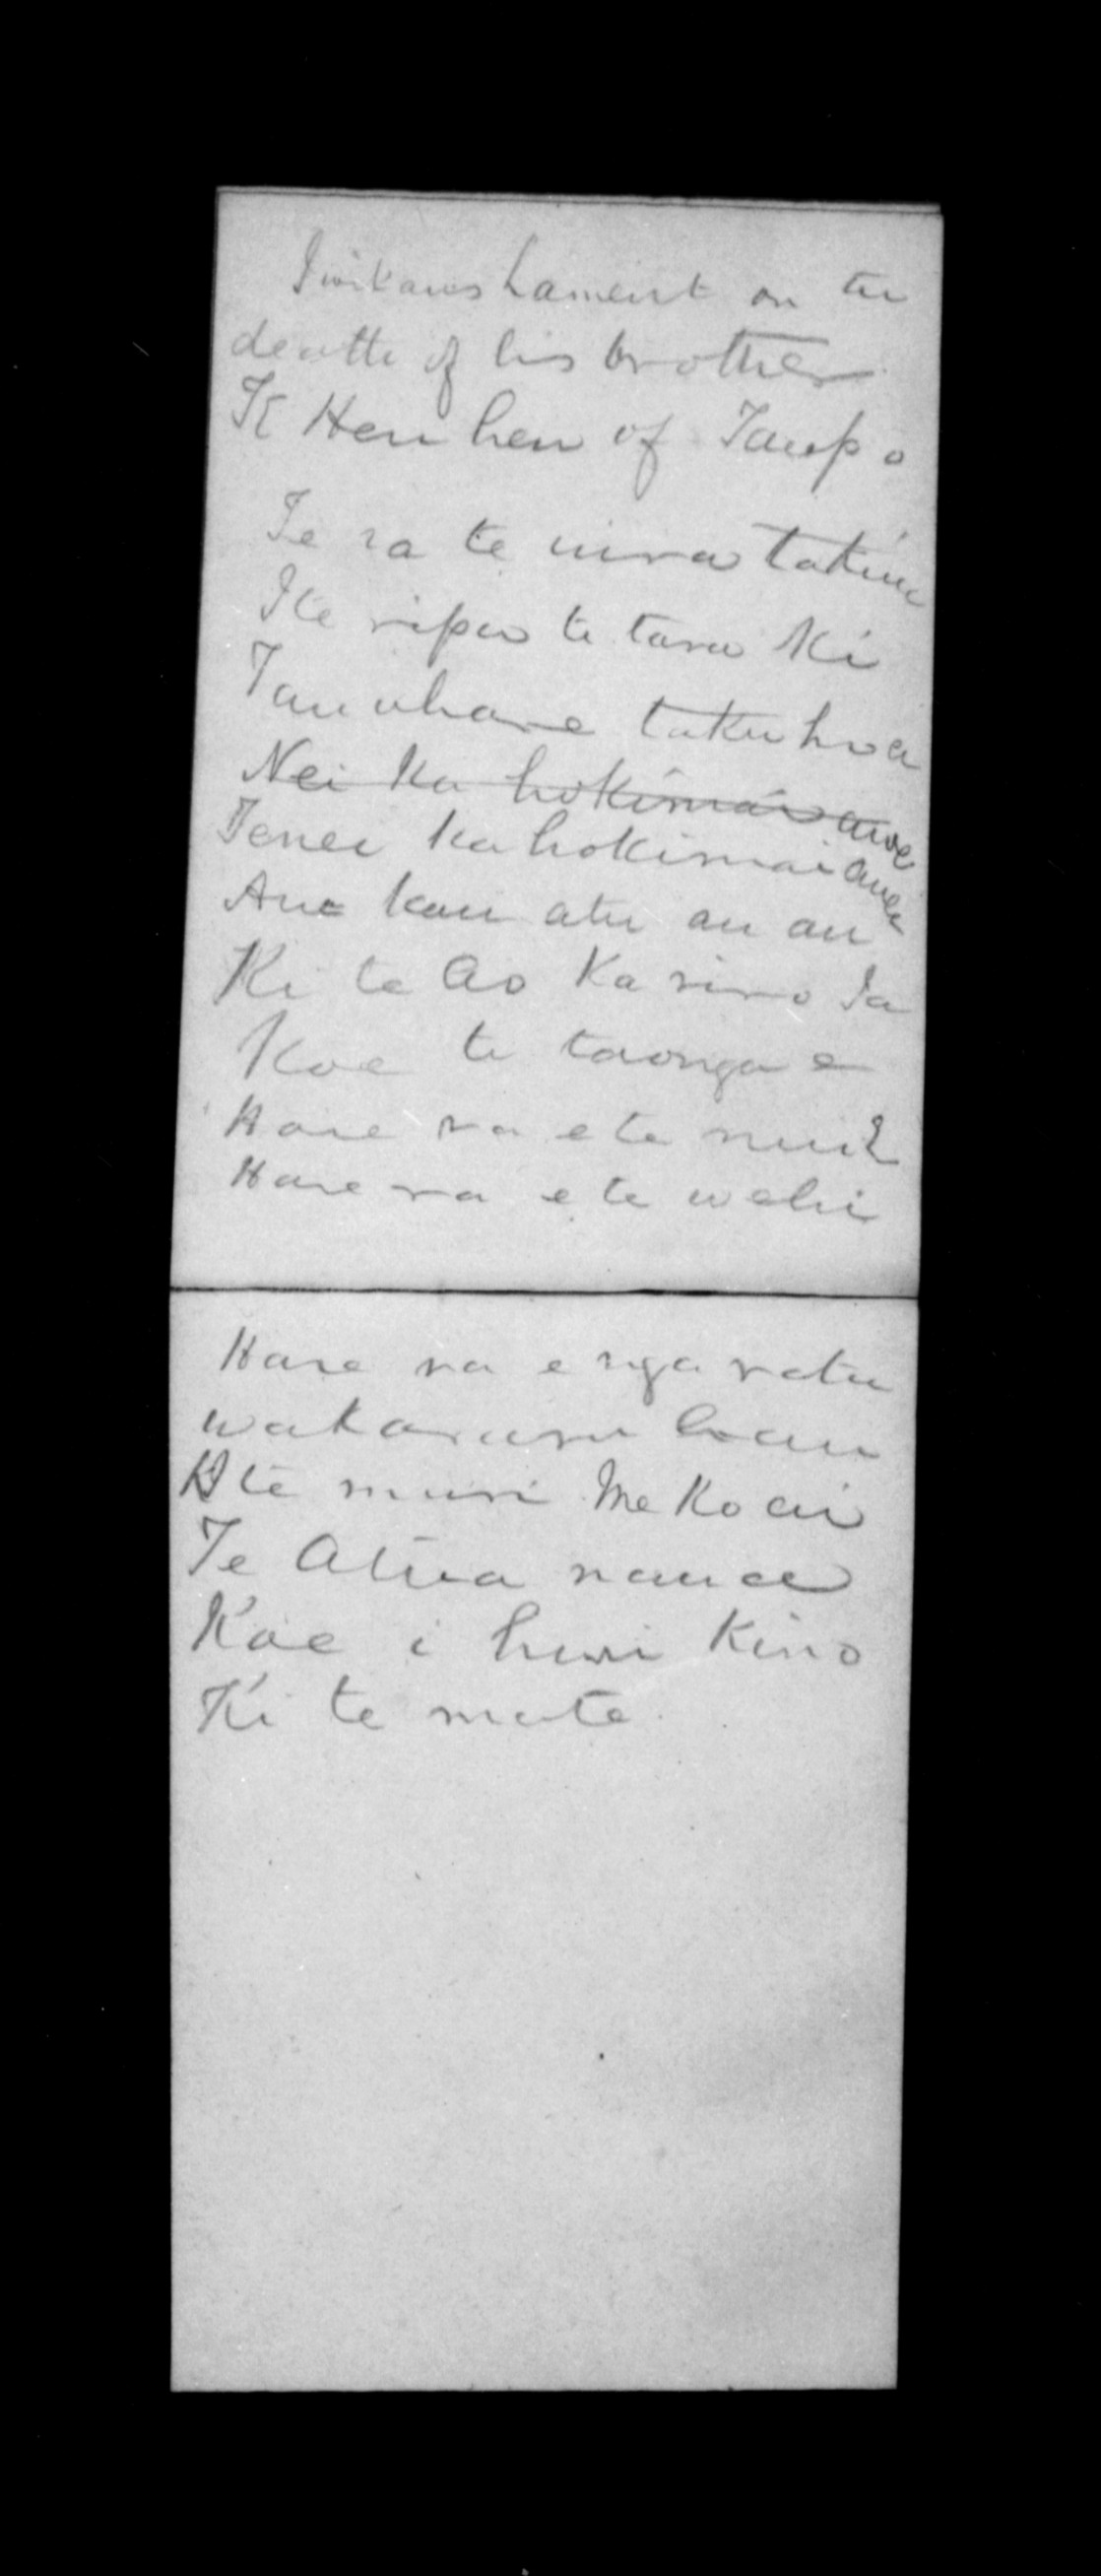 Iwikaus Lament on the
death of his brother
Te Heu heu of Taupo
Te ra te uira
I te ripa te tara ki
Tauwhare taku hoa
Nei ka hokimai aue
Tenei ka hokimai
Aue kau atu au au
Ki te Ao Ka riro Ia
Koe te taonga e
Haere ra e te
Haere ra e te wehi
Haere ra e nga ratu
wakaruru hau
Ki te muri Me Ko ai
Te Atua nana
Koe i huri kino
Ki te mate